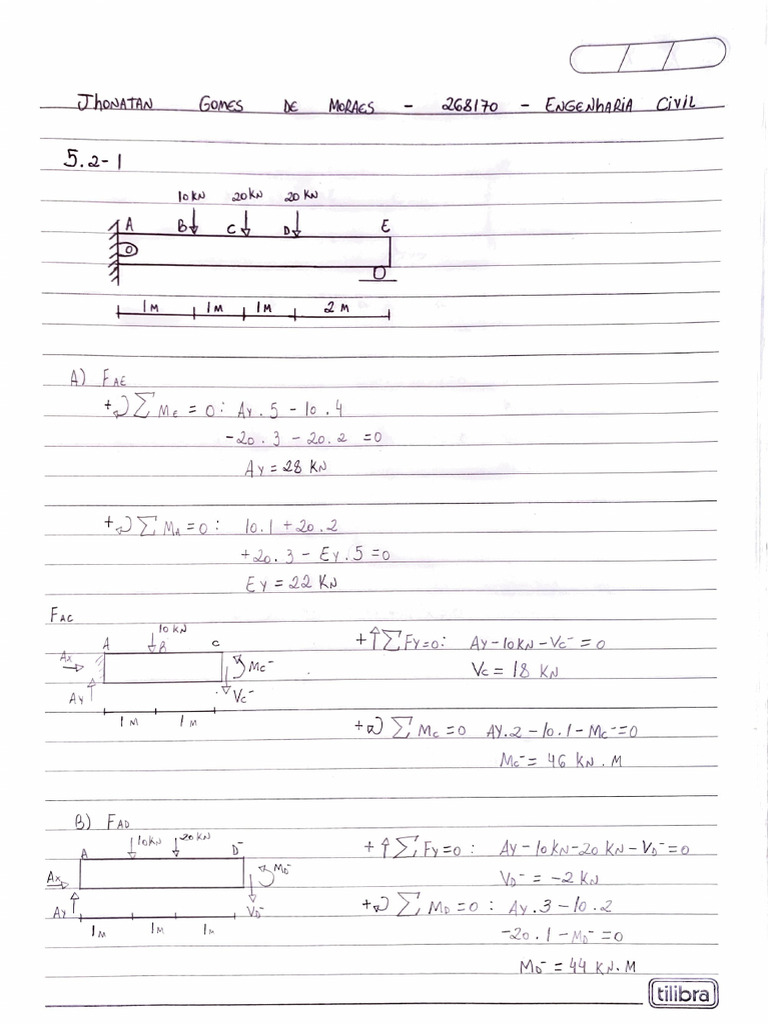 JHONATAN GOMES DE MORAES - 268170 - ENGENHARIA CIVIL
5.2-1
10 KN 20 KN 20 KN
A B C D E
1 M 1 M 1 M 2 M
A) FAE
+↻ ∑ ME = 0: Ay . 5 - 10 . 4
-20 . 3 - 20 . 2 = 0
Ay = 28 KN
+↻ ∑ MA = 0: 10 . 1 + 20 . 2
+20 . 3 - Ey . 5 = 0
Ey = 22 KN
FAC
10 KN
A B C
Ax
Mc⁻
Ay
Vc⁻
1 M 1 M
+↑ ∑ Fy = 0: Ay - 10 KN - Vc⁻ = 0
Vc = 18 KN
+↻ ∑ Mc = 0 Ay . 2 - 10 . 1 - Mc⁻ = 0
Mc⁻ = 46 KN . M
B) FAD
10 KN 20 KN
A D⁻
Ax
MD⁻
Ay
VD⁻
1 M 1 M 1 M
+↑ ∑ Fy = 0: Ay - 10 KN - 20 KN - VD⁻ = 0
VD⁻ = -2 KN
+↻ ∑ MD = 0: Ay . 3 - 10 . 2
-20 . 1 - MD⁻ = 0
MD⁻ = 44 KN . M
tilibra